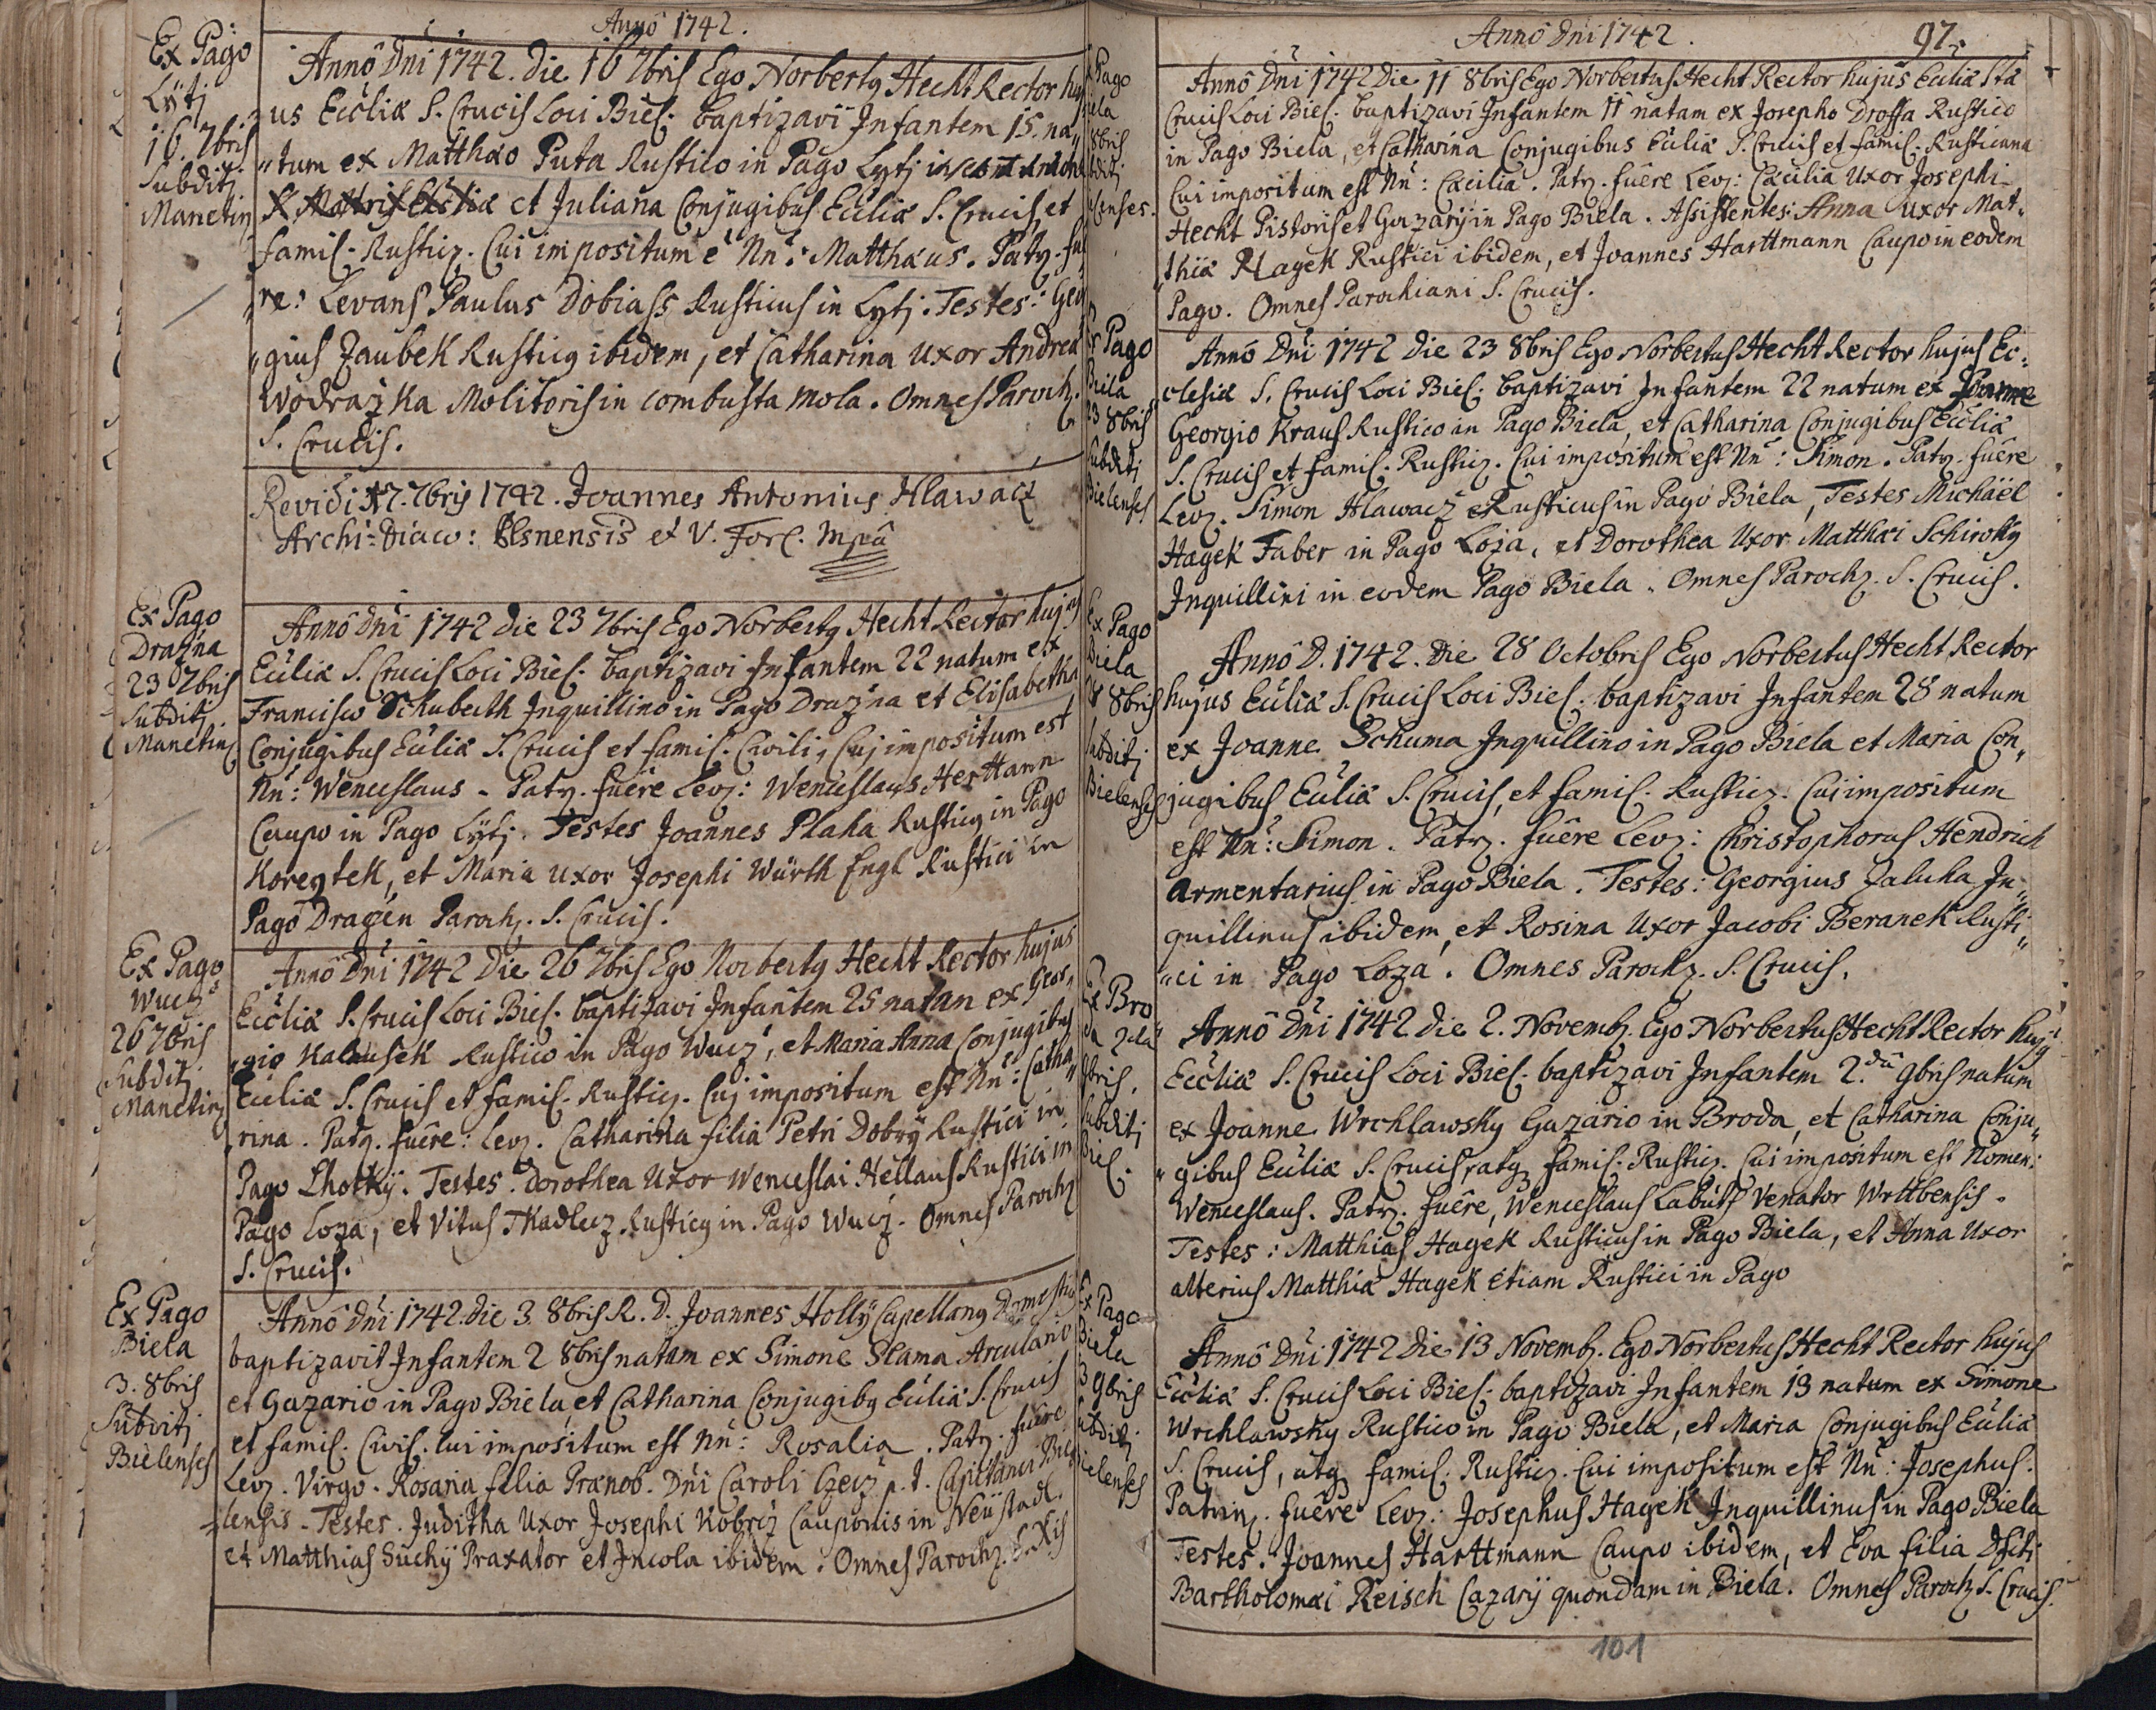 Anno 1742.
Ex Pago
Lytj
16. 7bris
Subditj
Manetin
Anno Dni 1742. die 16 7bris Ego Norbertq Hecht Rector huj
us Ecclia S. Crucis Loci Biel. baptizavi Infantem 15. na„
„tum ex Matthæo Puta Rustico in Pago Lytj
et Juliana Conjugibus Ecclia S. Crucis, et
famil. Rusticz. Cui impositum e Nn: Matthæus. Patz. fu
„re: Levans Paulus Dobiass Rusticus in Lytj. Testes: Geo
„gius Zaubek Rusticq ibidem, et Catharina Uxor Andrea
Wodrazka Molitoris in combusta mola. Omnes Paroch.
S. Crucis.
Revidi 17. 7bris 1742. Joannes Antonius Hlawacz
Archi-Diaco: Plsnensis et V. For. mpa
Ex Pago
Drazna
23 7bris
Subditj.
Manetinz
Anno Dni 1742 die 23 7bris Ego Norbertq Hecht Rector hujus
Ecclia S. Crucis Loci Biel. baptizavi Infantem 22 natum ex
Francisco Schuberth Inquillino in Pago Drazna et Elisabetha
Conjugibus Ecclia S. Crucis et famil. Civili, Cuj impositum est
Nn: Wenceslaus. Patz. fuêre Levz: Wenceslaus Herttann
Caupo in Pago Lytj. Testes Joannes Plaha Rusticq in Pago
Koregtek, et Maria Uxor Josephi Würth Engl Rustici in
Pago Dragen Parochz. S. Crucis.
Ex Pago
Wucz
26 7bris
Subditj
Manetinz
Anno Dni 1742 Die 26 7bris Ego Norbertq Hecht Rector hujus
Ecclia S. Crucis Loci Biel. baptizavi Infantem 25 natan ex Geor„
„gio Kalausek Rustico in Pago Wucz, et Maria Anna Conjugibus
Ecclia S. Crucis et famil. Rusticz. Cuj impositum est Nn: Catha„
„rina. Patz. fuêre: Levz. Catharina filia Petri Dobry Rustici in
Pago Lhotky. Testes. Dorothea Uxor Wenceslai Hellaus Rustici in
Pago Loza, et Vitus Tkadlecz Rusticq in Pago Wucz. Omnes Parochz
S. Crucis.
Ex Pago
Biela
3. 8bris
Subditj
Bielenses
Anno Dni 1742. die 3. 8bris R. D. Joannes Hollÿ Capellanq Domesticq
baptizavit Infantem 2 8bris natam ex Simone Slama Arculario
et Gazario in Pago Biela, et Catharina Conjugibq Ecclia S. Crucis
et famil. Civil. Cui impositum est Nn: Rosalia. Patz. fuêre
Levz. Virgo. Rosaria filia Prænob. Dni Caroli Czecz p. t. Capitanei Bie
lensis. Testes. Juditha Uxor Josephi Kobrcz Cauponis in Neustadl.
et Matthias Suchÿ Praxator et Incola ibidem. Omnes Parochz. S. Xis
Anno Dni 1742.
97.
Pago
iela
8bris
ditj
lenses.
Anno Dni 1742 Die 11 8bris Ego Norbertus Hecht Rector hujus Ecclia Sta
Crucis Loci Biel. baptizavi Infantem 11 natam ex Josepho Droffa Rustico
in Pago Biela, et Catharina Conjugibus Ecclia S. Crucis et famil. Rusticana
Cui impositum est Nn: Cæcilia. Patz. fuêre Levz: Cæcilia Uxor Josephi
Hecht Pistoris et Gazarij in Pago Biela. Assistentes: Anna Uxor Mat„
„thiæ Hagek Rustici ibidem, et Joannes Harttmann Caupo in eodem
Pago. Omnes Parochiani S. Crucis.
Ex Pago
Biela
23 8bris
Subditj
Bielenses
Anno Dni 1742 Die 23 8bris Ego Norbertus Hecht Rector hujus Ec:
clesiæ S. Crucis Loci Biel. baptizavi Infantem 22 natum ex
Georgio Kraus Rustico in Pago Biela, et Catharina Conjugibus Ecclia
S. Crucis et famil. Rusticz. Cui impositum est Nn: Simon. Patz. fuêre
Levz. Simon Hlawacz Rusticus in Pago Biela, Testes Michäel
Hagek Faber in Pago Loza, et Dorothea Uxor Matthæi Schiroky
Inquillini in eodem Pago Biela. Omnes Parochz. S. Crucis.
Ex Pago
Biela
28 8bris
Subditj
Bielenses
Anno D. 1742. Die 28 Octobris Ego Norbertus Hecht Rector
hujus Ecclia S. Crucis Loci Biel. baptizavi Infantem 28 natum
ex Joanne Schuma Inquillino in Pago Biela et Maria Con„
jugibus Ecclia S. Crucis, et famil. Rusticz. Cui impositum
est Nn: Simon. Patz. fuêre Levz: Christophorus Hendrich
Armentarius in Pago Biela. Testes: Georgius Zaluka In„
quillinus ibidem, et Rosina Uxor Jacobi Beranek Rusti„
„ci in Pago Loza. Omnes Parochz. S. Crucis.
Ex Bro
da 2da
9bris.
Subditj
Biel.
Anno Dni 1742 die 2. Novemb. Ego Norbertus Hecht Rector hujq
Ecclia S. Crucis Loci Biel. baptizavi Infantem 2.da 9bris natum
ex Joanne Wrchlawsky Gazario in Broda, et Catharina Conju„
„gibus Ecclia S. Crucis, atq famil. Rusticz. Cui impositum est Nomen:
Wenceslaus. Patz. fuêre, Wenceslaus Labuts Venator Wrttbensis.
Testes: Matthias Hagek Rusticus in Pago Biela, et Anna Uxor
alterius Matthiæ Hagek etiam Rustici in Pago
Ex Pago
Biela
3 9bris
Subditj
ielenses
Anno Dni 1742 Die 13 Novemb. Ego Norbertus Hecht Rector hujus
Ecclia S. Crucis Loci Biel. baptizavi Infantem 13 natum ex Simone
Wrchlawsky Rustico in Pago Biela, et Maria Conjugibus Ecclia
S. Crucis, atq famil. Rusticz. Cui impositum est Nn: Josephus.
Patrinz. fuêre Levz: Josephus Hagek Inquillinus in Pago Biela
Testes. Joannes Harttmann Caupo ibidem, et Eva filia Dfcti
Bartholomæi Reisch Cazarÿ quondam in Biela. Omnes Parochz S. Crucis.
101